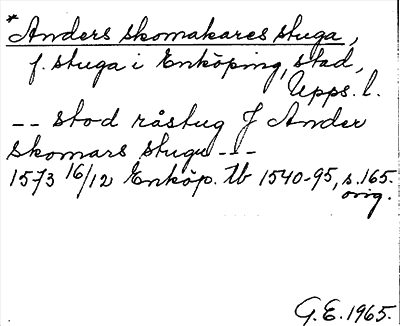 *Anders skomakares stuga,
f. stuga i Enköping, stad,
Upps. l.
-- stod råstug J Ander
skomars stugu ---
1573 16/12 Enköp. tb 1540-95, s. 165.
orig.
G.E. 1965.